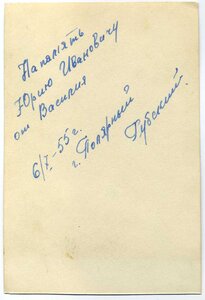 На память
Юрию Ивановичу
от Василия
6/7. -55 г.
г. Полярный
Губский.